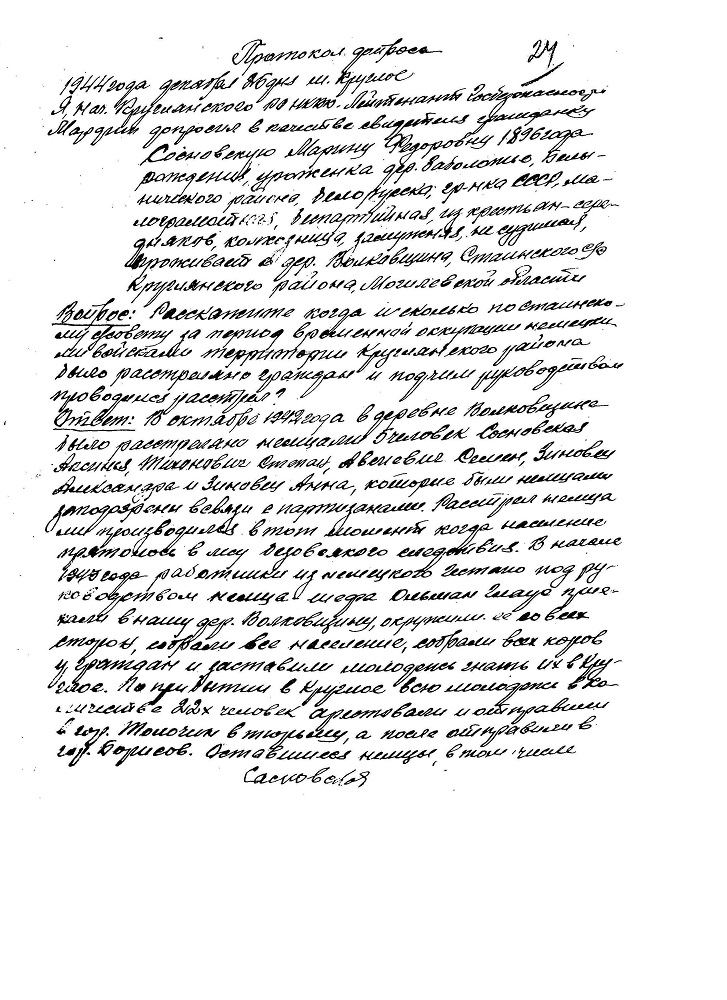 Протокол допроса 24
1944 года декабря 26 дня м. Круглое
Я, нач. Круглянского РО НКГБ Лейтенант Госбезопасности
Мардин допросил в качестве свидетеля гражданку
Сосновскую Марину Федоровну 1896 года
рождения, уроженка дер. Заболотье, Белы-
ничского района, белоруска, гр-нка СССР, ма-
лограмотная, беспартийная, из крестьян-серед-
няков, колхозница, замужняя, не судимая,
проживает в дер. Волковщина, Стаинского с/с
Круглянского района, Могилевской области
Вопрос: Расскажите когда и сколько по стаинско-
му с/совету за период временной оккупации немецки-
ми войсками территории Круглянского района
было расстреляно граждан и под чьим руководством
проводился расстрел?
Ответ: В октябре 1942 года в деревне Волковщине
было расстреляно немцами 5 человек Сосновская
Аксинья, Тихонович Степан, Авсиевич Семен, Зиновец
Александра и Зиновец Анна, которые были немцами
заподозрены в связи с партизанами. Расстрел немца
ми производился в тот момент когда население
пряталось в лесу без всякого следствия. В начале
1943 года работники из немецкого Гестапо под ру-
ководством немца шефа Ольман Глауб прие-
хали в нашу дер. Волковщину, окружили ее со всех
сторон, собрали все население, собрали всех коров
у граждан и заставили молодежь гнать их в Кру-
глое. По прибытии в Круглое всю молодежь в ко-
личестве 22х человек арестовали и отправили
в гор. Толочин в тюрьму, а после отправили в
гор. Борисов. Оставшиеся немцы, в том числе
Сасновская